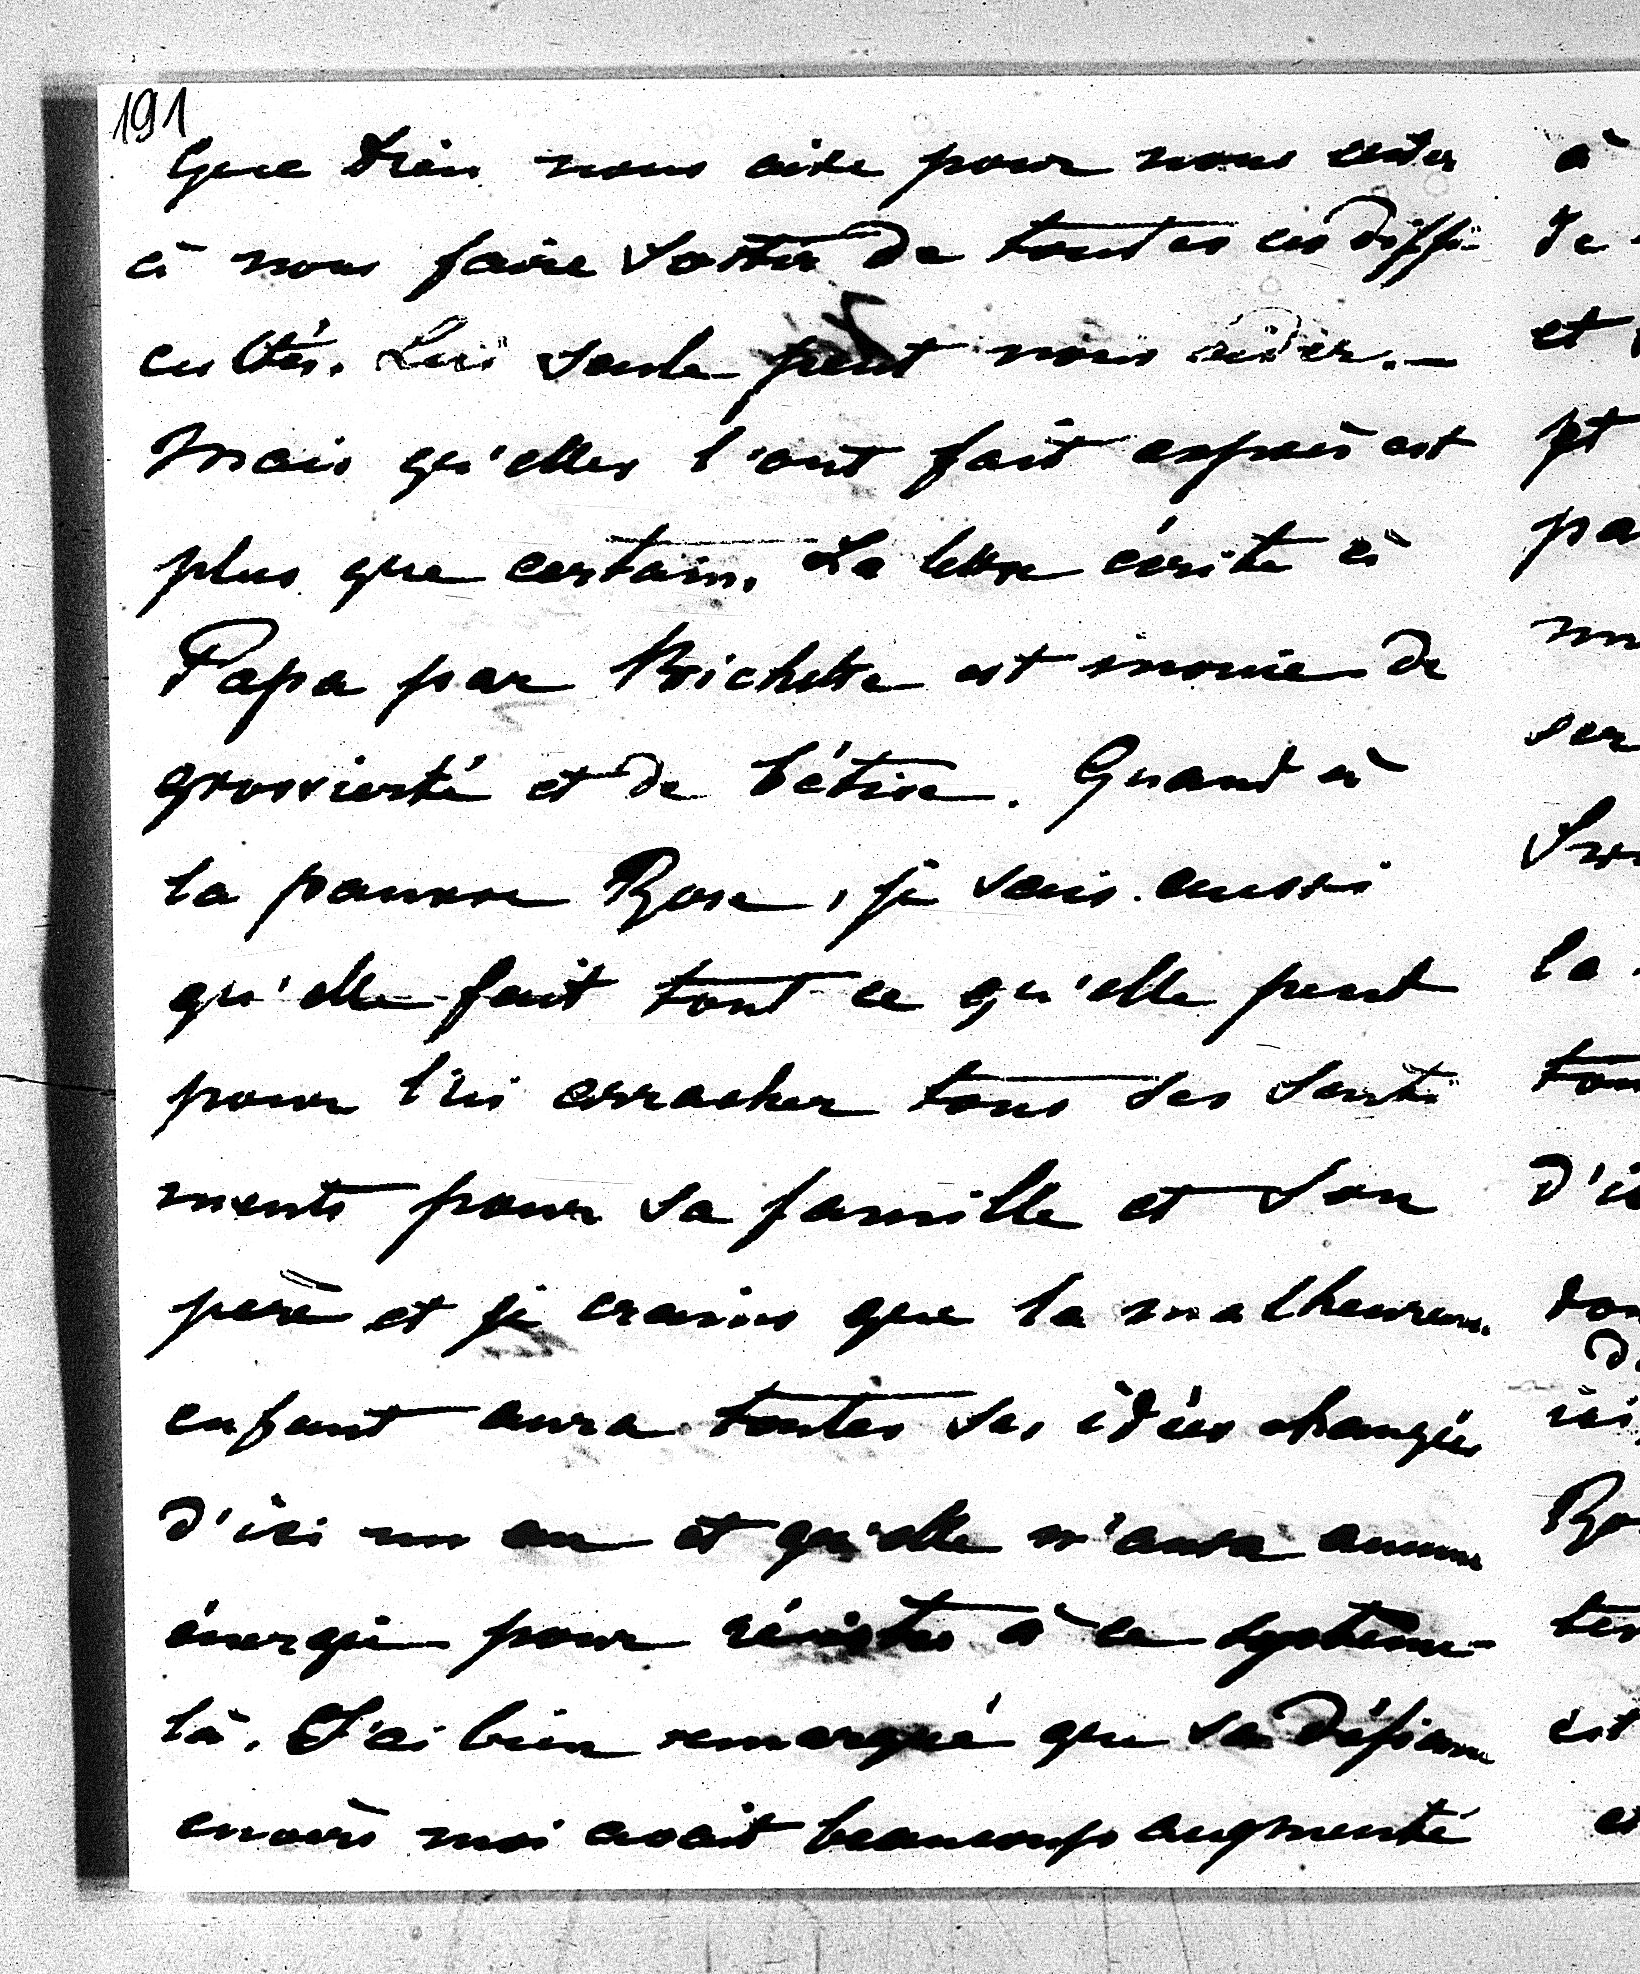 191
Que Dieu nous aide pour nous aider à
à nous faire sortir de toutes ces diffi- de
cultés. Lui seule peut nous aider. — et
Mais qu'elles l'ont fait exprès est pt
plus que certain. La lettre écrite à pa
Papa par Richette est inouie de
grossierté et de bêtise. Quand à ser
la pauvre Rose, je sais aussi
qu'elle fait tout ce qu'elle peut la
pour lui arracher tous ses senti- tou
ments pour sa famille et son d'ic
père et je crains que la malheureuse don
enfant aura toutes ses idées changées ici,
d'ici un an et qu'elle n'aura aucune Ro
énergie pour résister à ce système- ter
là. J'ai bien remarqué que sa défiance est
envers moi avait beaucoup augmenté et